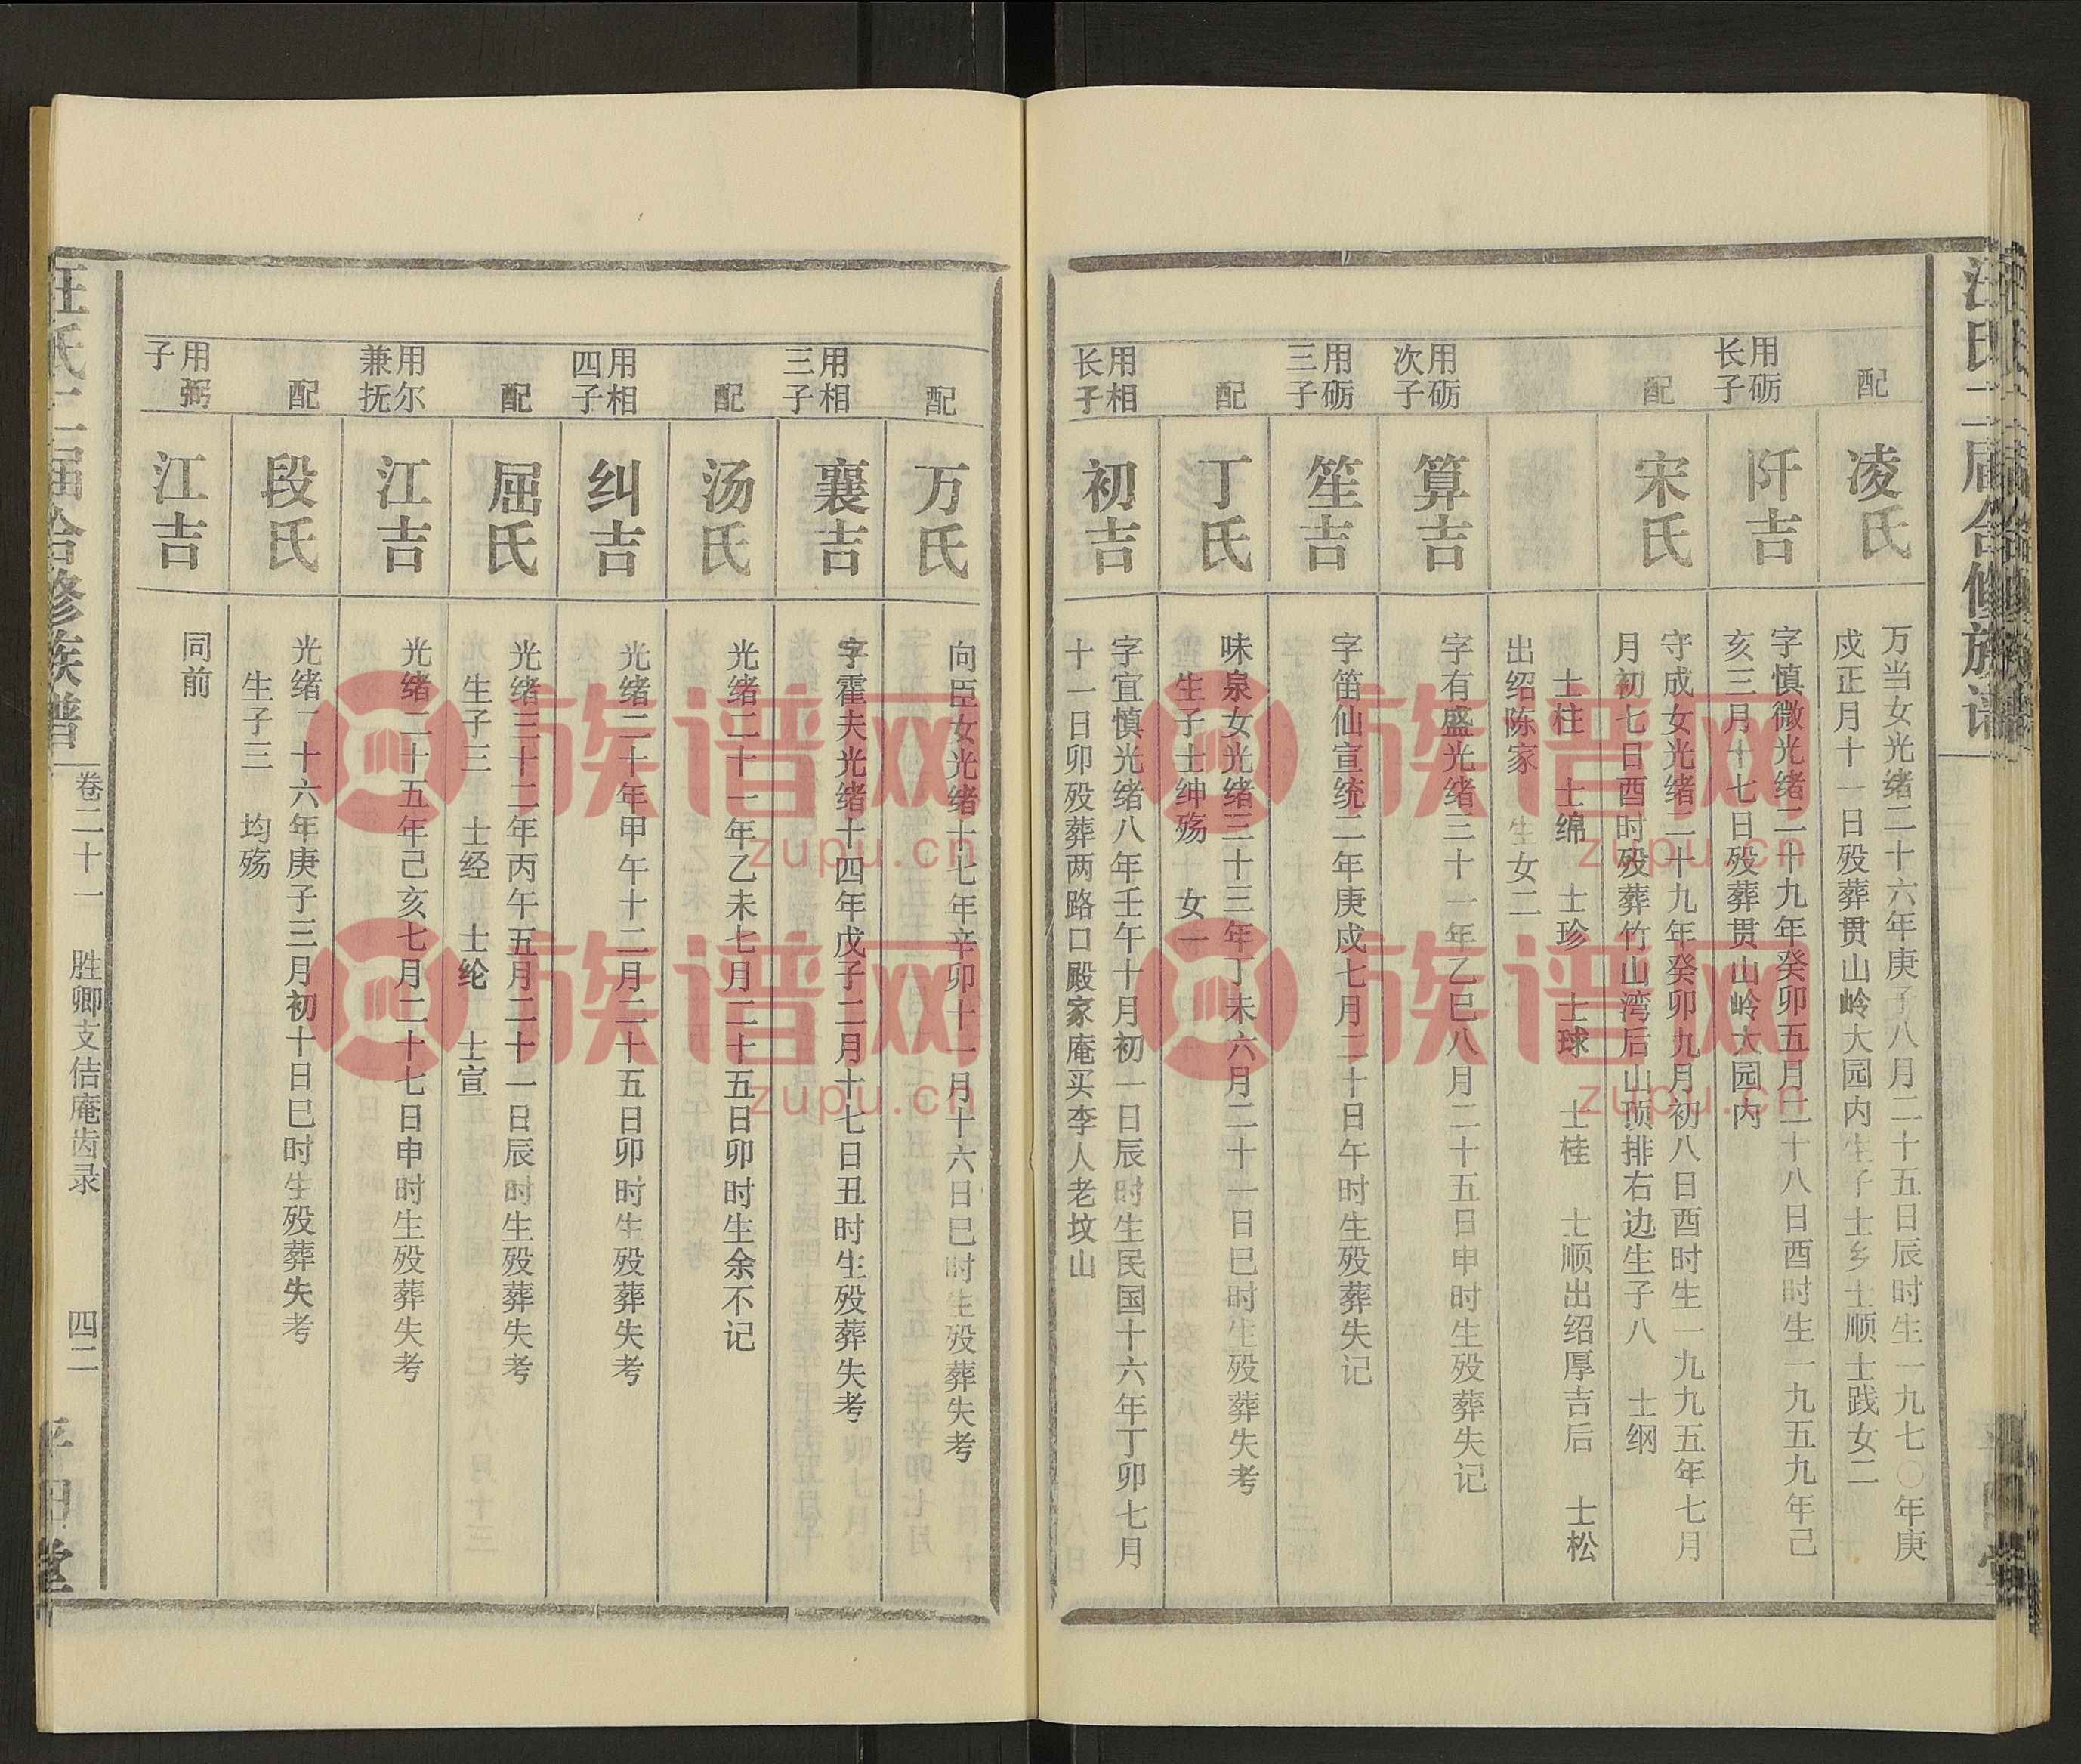 汪氏二届合修族谱
配
凌氏
万当女光绪二十六年庚子八月二十五日辰时生一九七〇年庚
戍正月十一日殁葬贯山岭大园内生子士乡士顺士践女二
用砺
长子
阡吉
字慎微光绪二十九年癸卯五月二十八日酉时生一九五九年己
亥三月十七日殁葬贯山岭大园内
配
宋氏
守成女光绪二十九年癸卯九月初八日酉时生一九九五年七月
月初七日酉时殁葬竹山湾后山顶排右边生子八 士纲
士柱 士绵 士珍 士球 士桂 士顺出绍厚吉后 士松
出绍陈家 生女二
用砺
次子
算吉
字有盛光绪三十一年乙巳八月二十五日申时生殁葬失记
用砺
三子
笙吉
字笛仙宣统二年庚戍七月二十日午时生殁葬失记
配
丁氏
味泉女光绪三十三年丁未六月二十一日巳时生殁葬失考
生子士绅殇 女一
用相
长子
初吉
字宜慎光绪八年壬午十月初一日辰时生民国十六年丁卯七月
十一日卯殁葬两路口殿家庵买李人老坟山
配
万氏
向臣女光绪十七年辛卯十一月十六日巳时生殁葬失考
用相
三子
襄吉
字霍夫光绪十四年戊子二月十七日丑时生殁葬失考
配
汤氏
光绪二十一年乙未七月二十五日卯时生余不记
用相
四子
纠吉
光绪二十年甲午十二月二十五日卯时生殁葬失考
配
屈氏
光绪三十二年丙午五月二十一日辰时生殁葬失考
生子三 士经 士纶 士宣
用尔
兼抚
江吉
光绪二十五年己亥七月二十七日申时生殁葬失考
配
段氏
光绪二十六年庚子三月初十日巳时生殁葬失考
生子三 均殇
用弼
子
江吉
同前
汪氏二届合修族谱
卷二十一 胜卿支佶庵齿录 四二
平阳堂
族谱网
zupu.cn
族谱网
zupu.cn
族谱网
zupu.cn
族谱网
zupu.cn